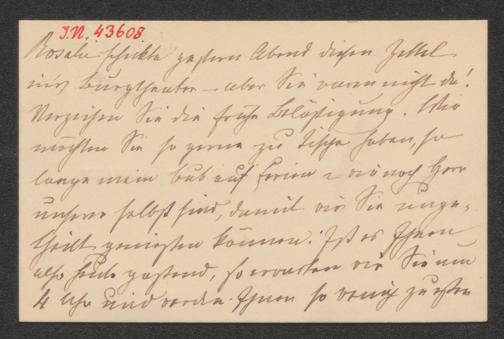 I.N. 43608
Rosalie schickte gestern Abend diesen Zettel
in's Burgtheater – aber Sie waren nicht da!
Verzeihen Sie die frühe Belästigung. Wir
möchten Sie so gerne zu Tische haben, so
lange mein Bub auf Ferien u wir noch Herr
unserer selbst sind, damit wir Sie unge-
theilt genießen können. Ist es Ihnen
also heute passend, so erwarten wir Sie um
4 Uhr und werden Ihnen so wenig zu essen